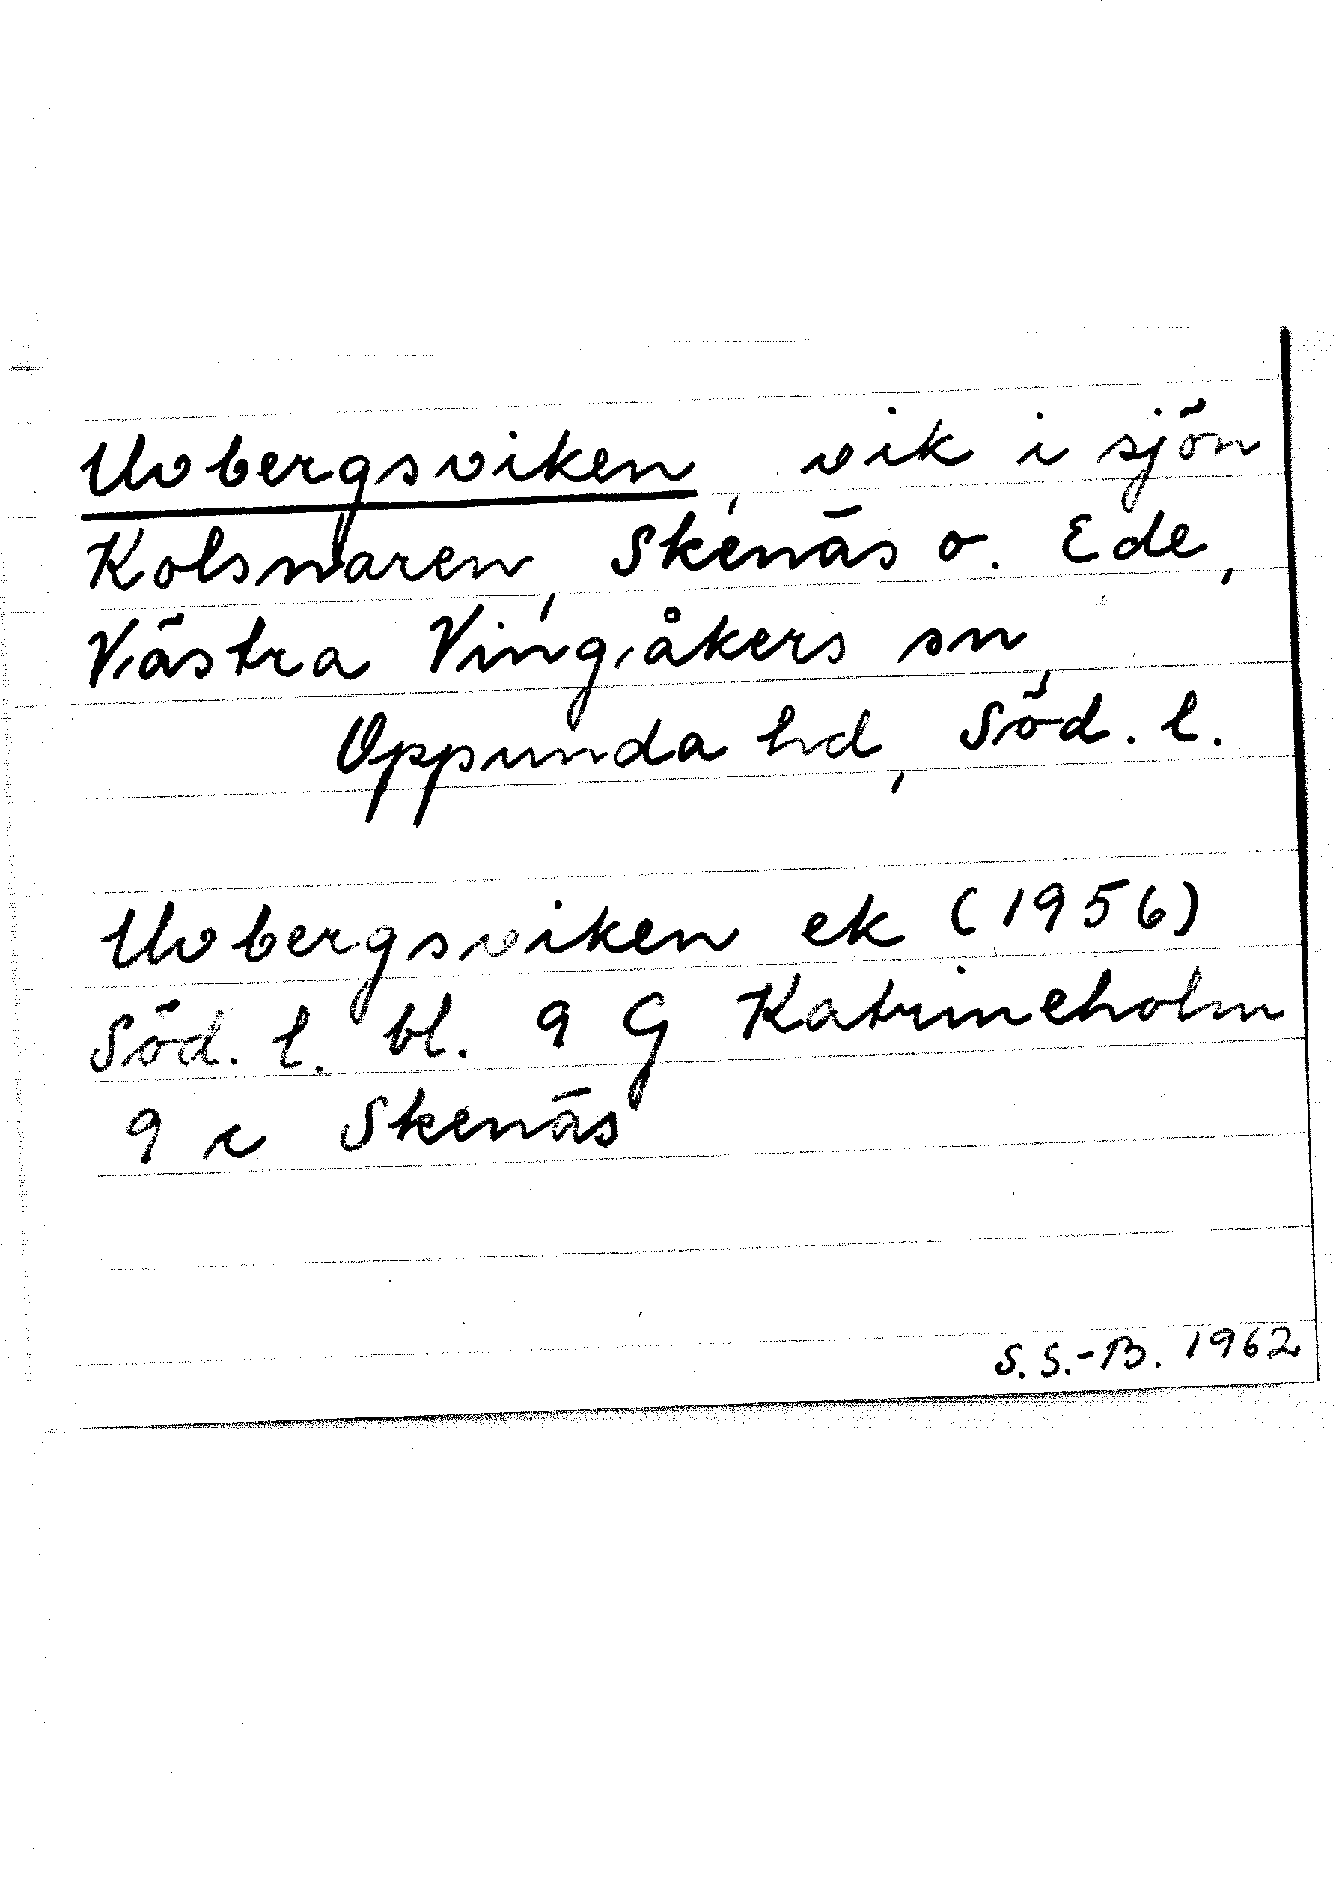 Uvbergsviken, vik i sjön
Kolsnaren, Skenäs o. Ede,
Västra Vingåkers sn,
Oppunda hd, Söd. l.
Uvbergsviken ek (1956)
Söd. l. bl. 9 G Katrineholm
9 c Skenäs
S. S.-B. 1962